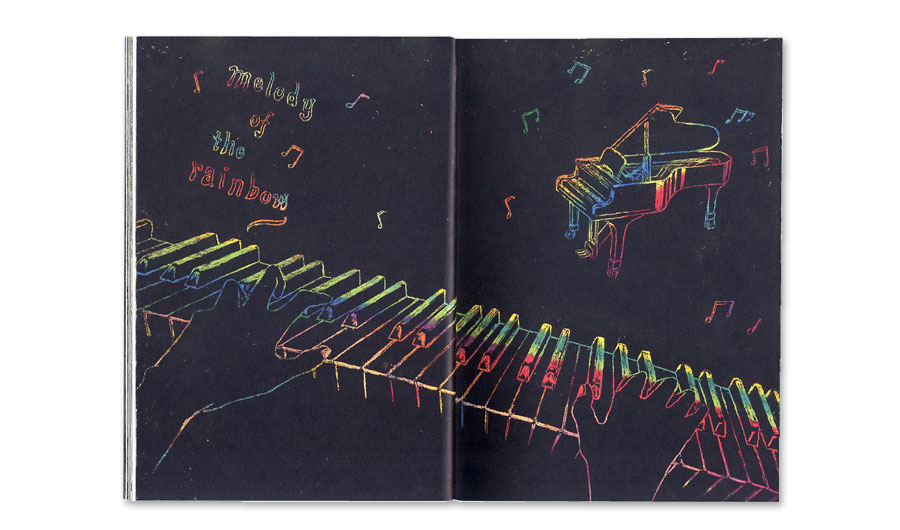 melody
of
the
rainbow